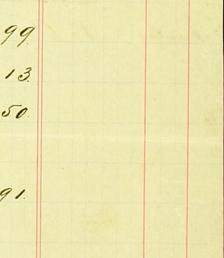 99
13
50
91